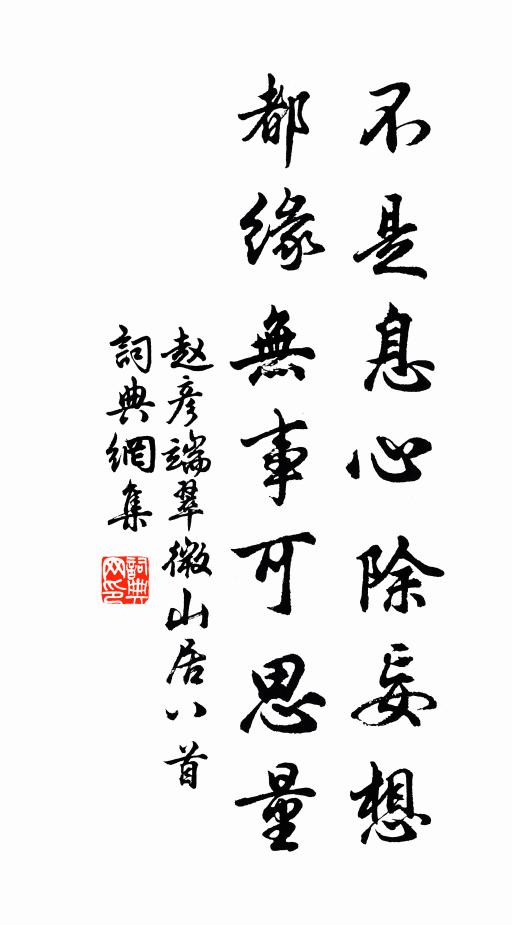 不是息心除妄想
都緣無事可思量
赵彦端翠微山居八首
詞典網集
詞典网印